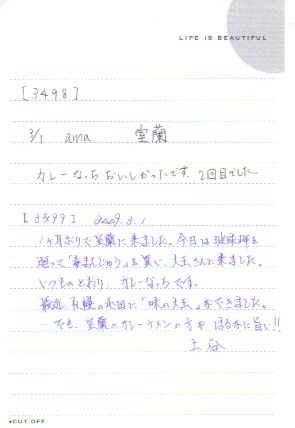 LIFE IS BEAUTIFUL
[3498]
3/1 ama 室蘭
カレーなっち おいしかったです. 2回目でした。
[3499] 2009.3.1
1ヶ月ぶりで室蘭に来ました。今日は地球岬を
廻って「毒まんじゅう」を買い、大王さんに来ました。
いつものとおり、カレーなっちです。
最近、札幌の永田に「味の大王」ができました。
…でも、室蘭のカレーラーメンの方がはるかに旨い!!
土谷
CUT OFF